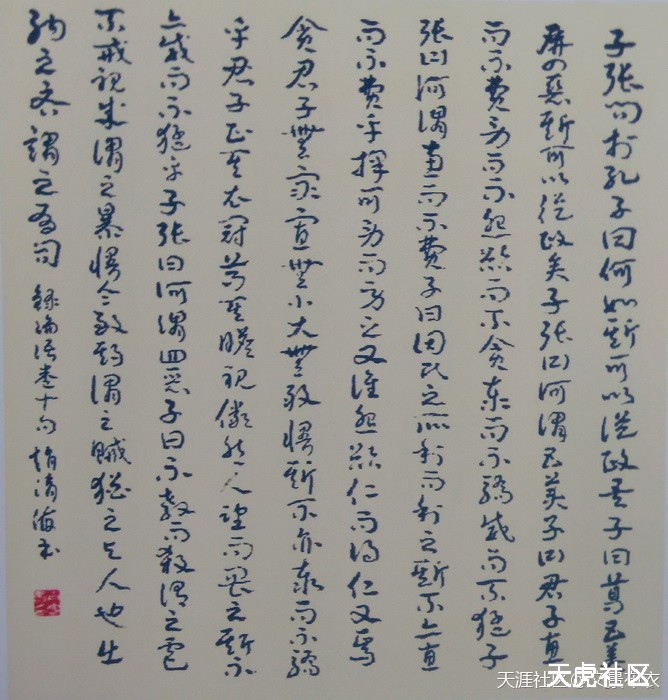 子張問於孔子曰何如斯可以從政矣子曰尊五美
屏四惡斯可以從政矣子張曰何謂五美子曰君子惠
而不費勞而不怨欲而不貪泰而不驕威而不猛子
張曰何謂惠而不費子曰因民之所利而利之斯不亦惠
而不費乎擇可勞而勞之又誰怨欲仁而得仁又焉
貪君子無眾寡無小大無敢慢斯不亦泰而不驕
乎君子正其衣冠尊其瞻視儼然人望而畏之斯不
亦威而不猛乎子張曰何謂四惡子曰不教而殺謂之虐
不戒視成謂之暴慢令致期謂之賊猶之與人也出
納之吝謂之有司 錄論語
天涯社区
天虎社区